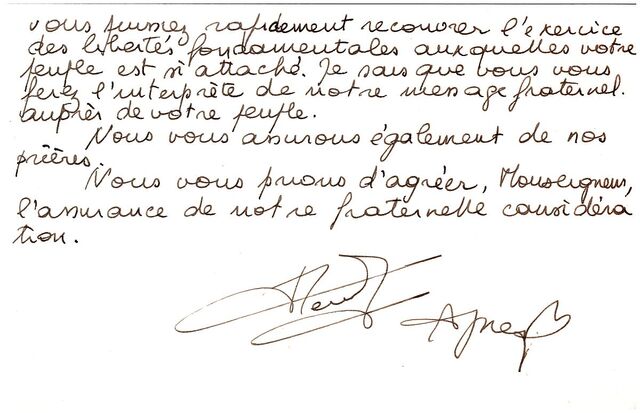 vous puissiez rapidement recouvrer l'exercice
des libertés fondamentales auxquelles votre
peuple est si attaché. Je sais que vous vous
ferez l'interprète de notre message fraternel
auprès de votre peuple.
Nous vous assurons également de nos
prières.
Nous vous prions d'agréer, Monseigneur,
l'assurance de notre fraternelle considéra
tion.